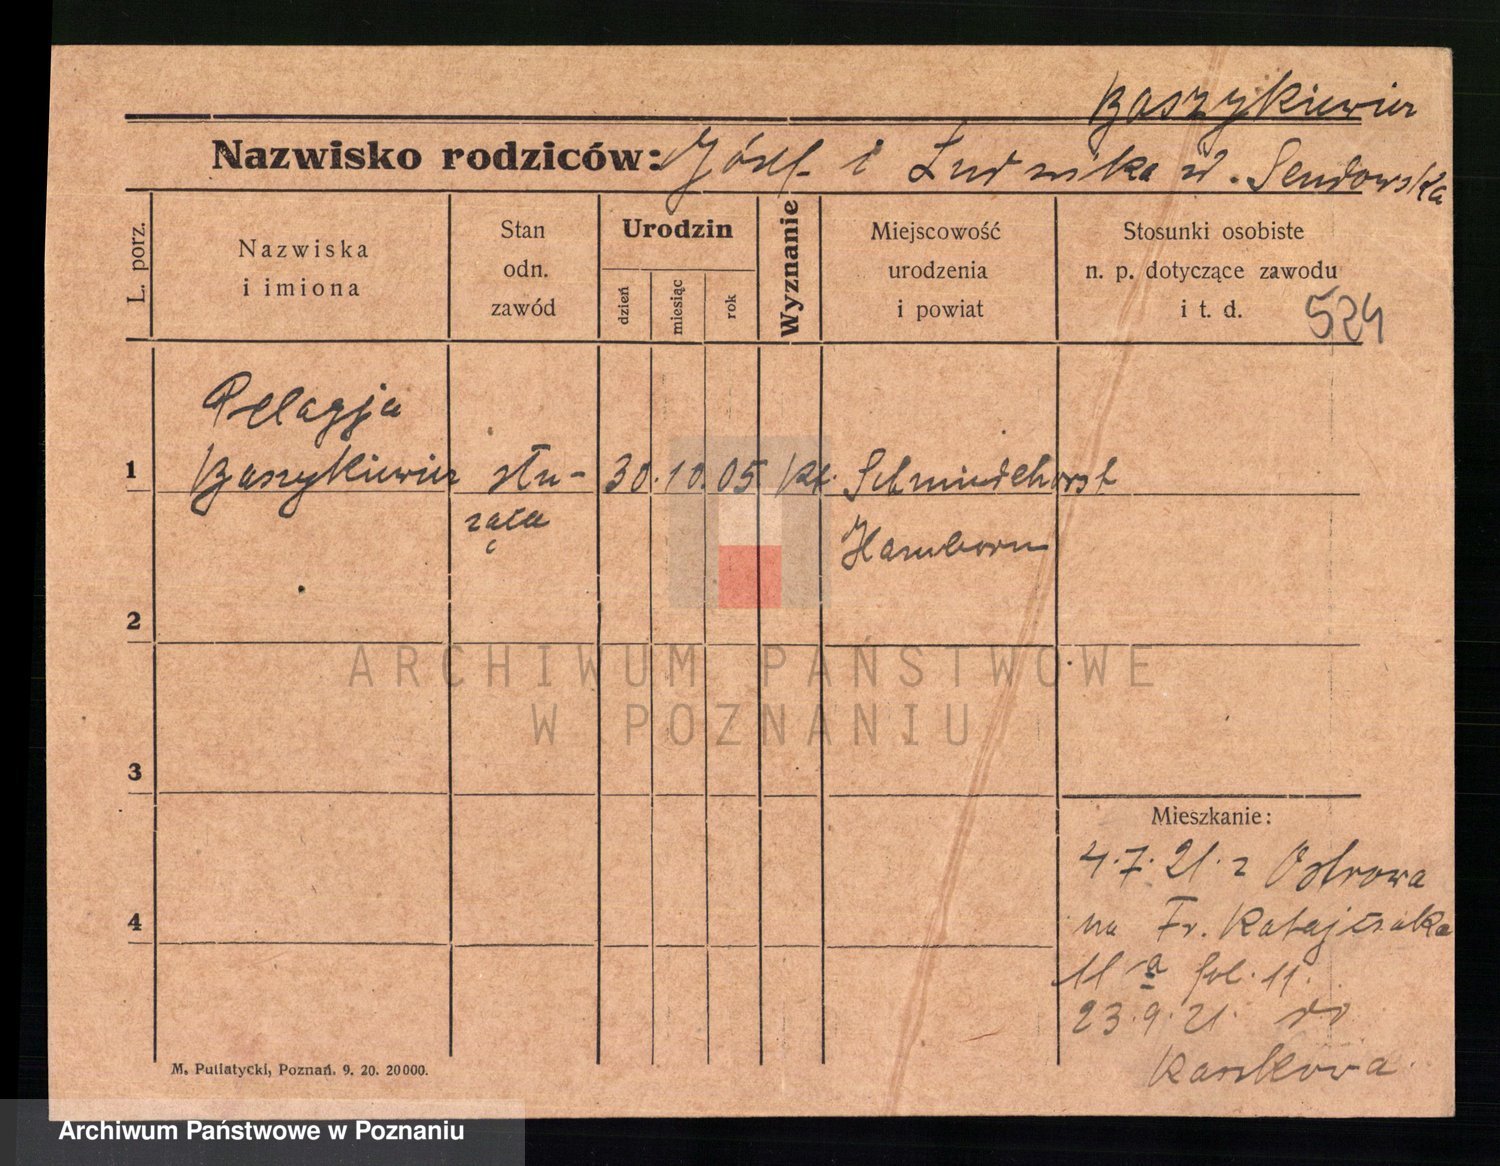 Baszykiewicz
Nazwisko rodziców: Józef i Ludwika d. Sendowska
L. porz.
Nazwiska
i imiona
Stan
odn.
zawód
Urodzin
dzień
miesiąc
rok
Wyznanie
Miejscowość
urodzenia
i powiat
Stosunki osobiste
n. p. dotyczące zawodu
i t. d.
524
Pelagja
1 Baszykiewicz słu- 30. 10. 05 kt. Schmidthorst
żąca
Hamborn
2
ARCHIWUM PAŃSTWOWE
W POZNANIU
3
Mieszkanie:
4.7.21. z Ostrowa
4
na Fr. Ratajczaka
11 a fol. 11.
23.9.21. do
Raszkowa.
M. Putiatycki, Poznań. 9. 20. 20000.
Archiwum Państwowe w Poznaniu